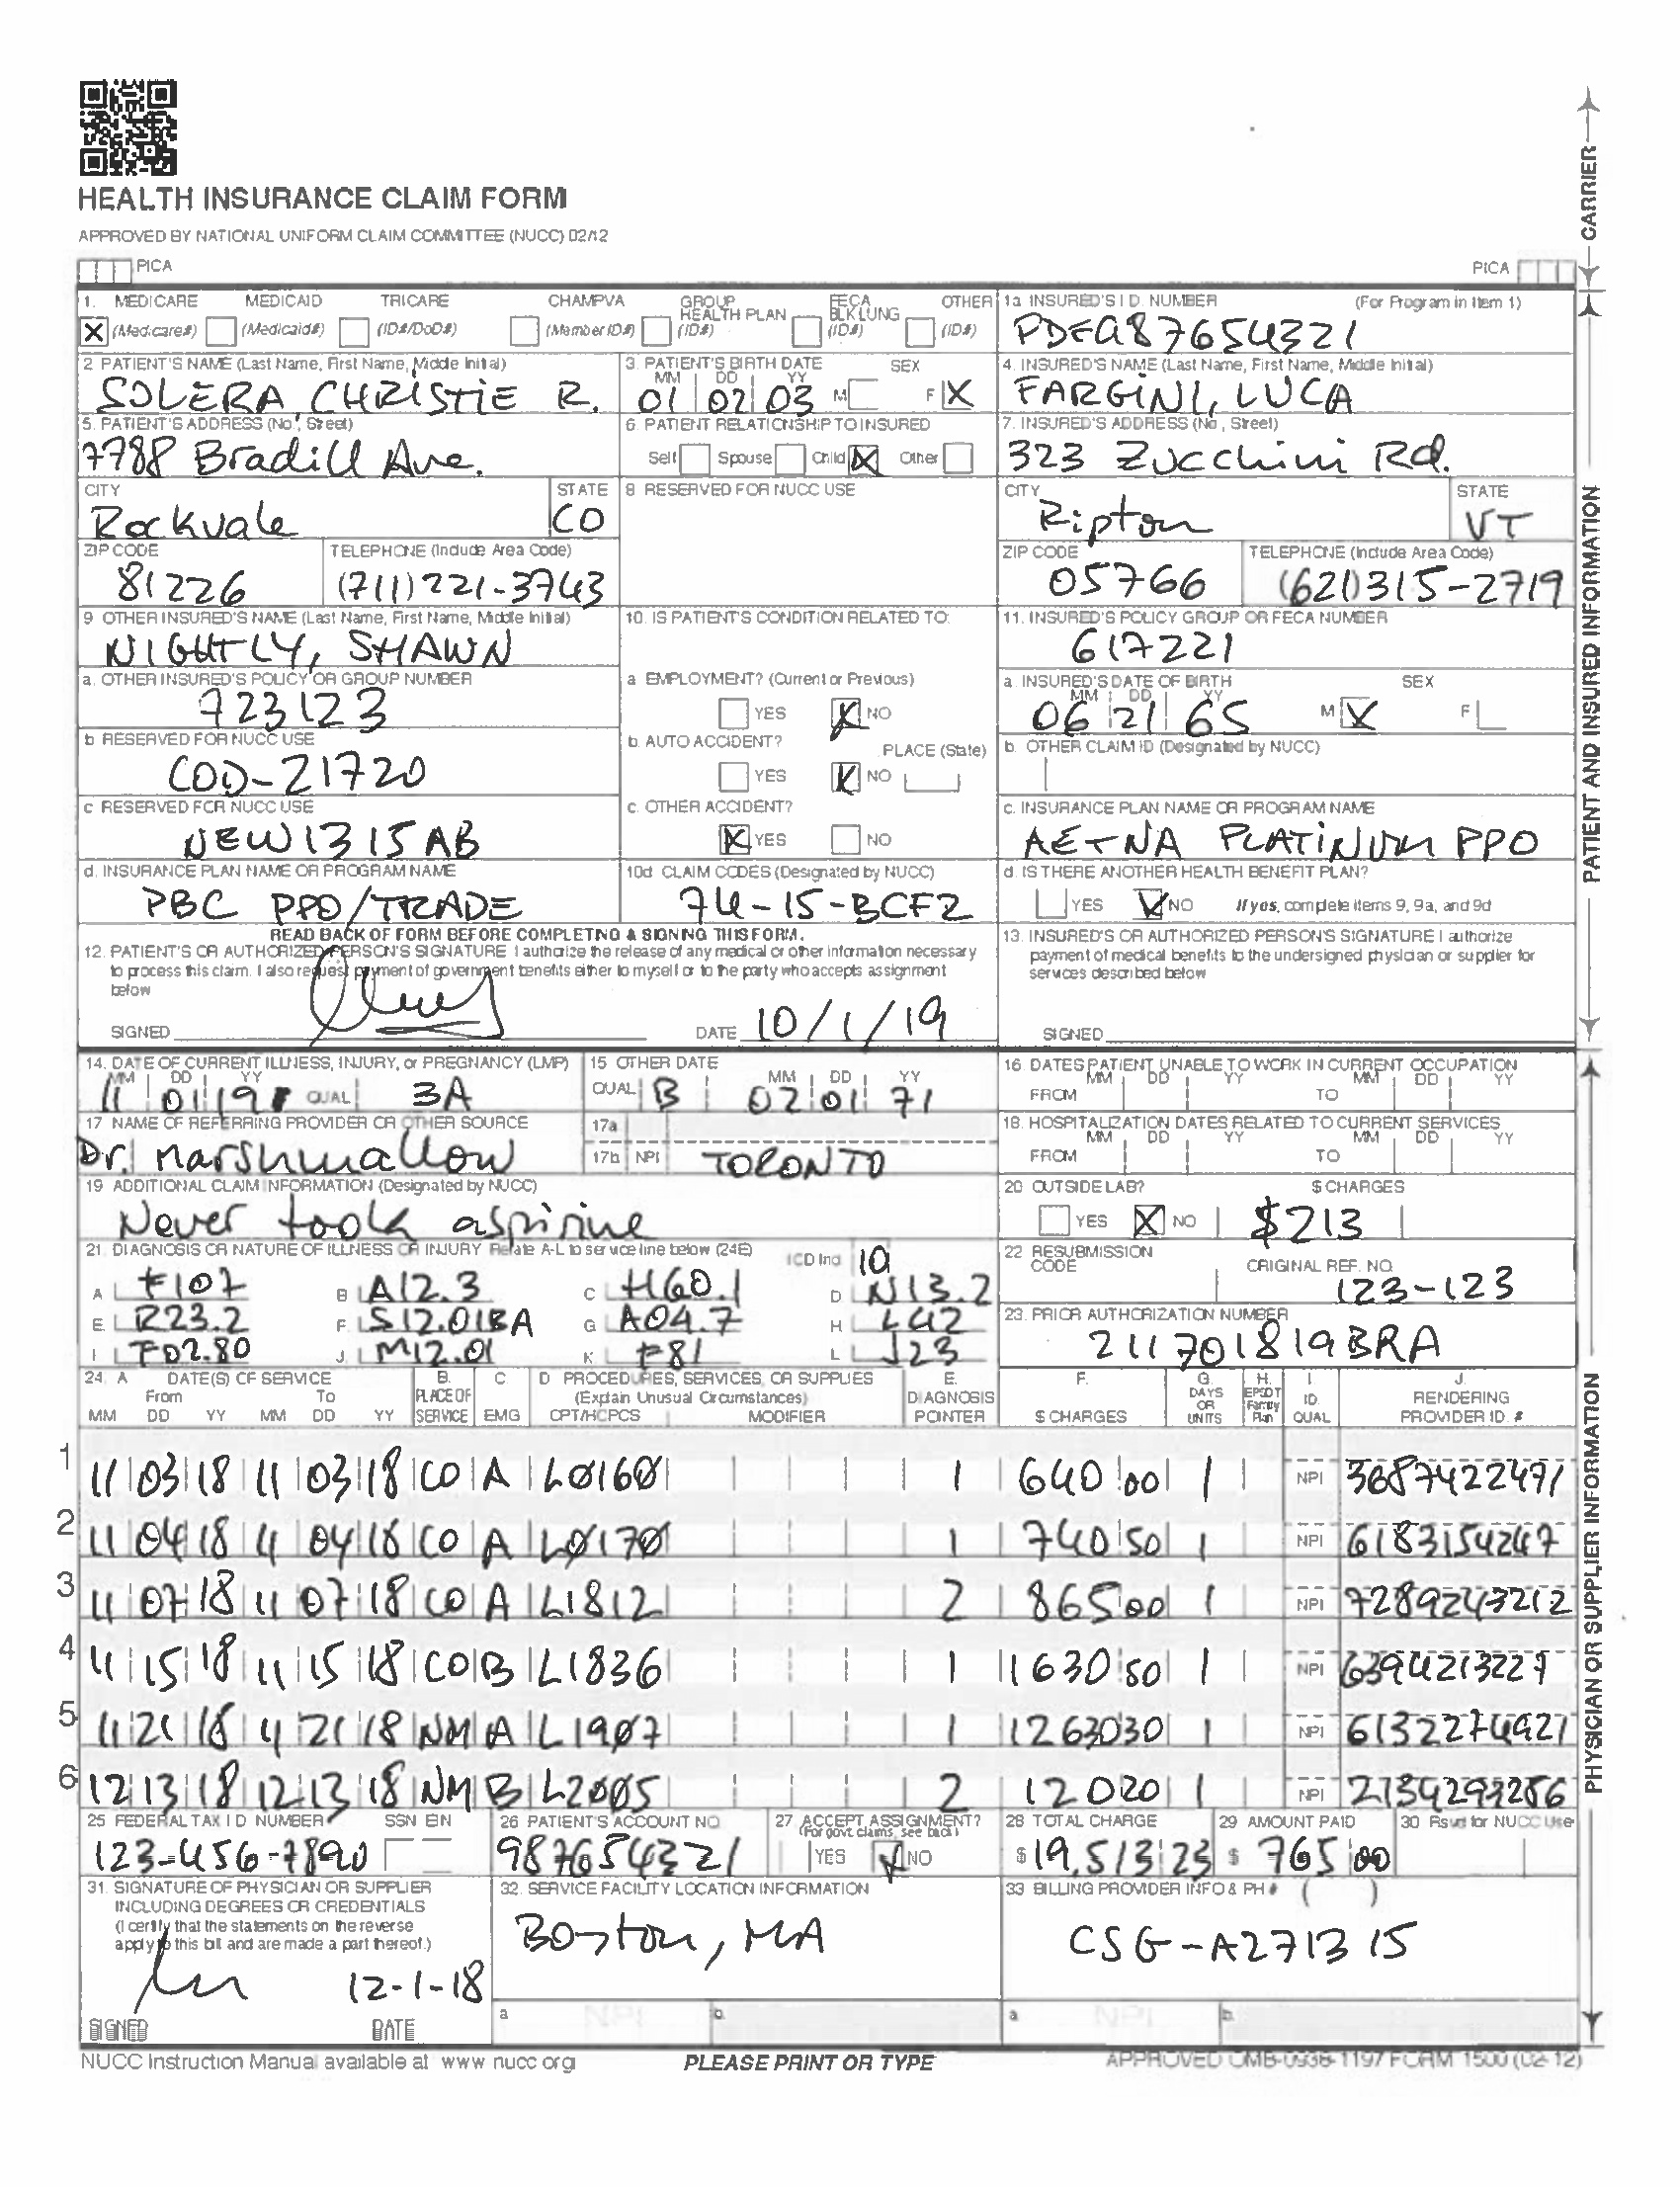 HEALTH INSURANCE CLAIM FORM
APPROVED BY NATIONAL UNIFORM CLAIM COMMITTEE (NUCC) 02/12
PICA
PICA
CARRIER
1. MEDICARE MEDICAID TRICARE CHAMPVA GROUP HEALTH PLAN FECA BLK LUNG OTHER
X (Medicare#) (Medicaid#) (ID#/DoD#) (Member ID#) (ID#) (ID#) (ID#)
1a INSURED'S I.D. NUMBER (For Program in Item 1)
2. PATIENT'S NAME (Last Name, First Name, Middle Initial)
SOLERA, CHRISTIE R.
3. PATIENT'S BIRTH DATE SEX
MM DD YY
01 02 03 M F X
4. INSURED'S NAME (Last Name, First Name, Middle Initial)
FARGINI, LUCA
5. PATIENT'S ADDRESS (No., Street)
7788 Bradill Ave.
6. PATIENT RELATIONSHIP TO INSURED
Self Spouse Child X Other
7. INSURED'S ADDRESS (No., Street)
323 Zucchini Rd.
CITY STATE
Rockvale CO
8. RESERVED FOR NUCC USE
CITY STATE
Ripton VT
ZIP CODE TELEPHONE (Include Area Code)
81226 (711) 221-3743
ZIP CODE TELEPHONE (Include Area Code)
05766 (621) 315-2719
9. OTHER INSURED'S NAME (Last Name, First Name, Middle Initial)
NIGHTLY, SHAWN
10. IS PATIENT'S CONDITION RELATED TO:
11. INSURED'S POLICY GROUP OR FECA NUMBER
617221
a. OTHER INSURED'S POLICY OR GROUP NUMBER
723123
a. EMPLOYMENT? (Current or Previous)
YES X NO
a. INSURED'S DATE OF BIRTH SEX
MM DD YY
06 21 65 M X F
b. RESERVED FOR NUCC USE
COD-21720
b. AUTO ACCIDENT? PLACE (State)
YES X NO
b. OTHER CLAIM ID (Designated by NUCC)
c. RESERVED FOR NUCC USE
NEW1315AB
c. OTHER ACCIDENT?
X YES NO
c. INSURANCE PLAN NAME OR PROGRAM NAME
AETNA PLATINUM PPO
d. INSURANCE PLAN NAME OR PROGRAM NAME
PBC PPO/TRADE
10d. CLAIM CODES (Designated by NUCC)
74-15-BCF2
d. IS THERE ANOTHER HEALTH BENEFIT PLAN?
YES X NO If yes, complete items 9, 9a, and 9d
READ BACK OF FORM BEFORE COMPLETING & SIGNING THIS FORM.
12. PATIENT'S OR AUTHORIZED PERSON'S SIGNATURE I authorize the release of any medical or other information necessary
to process this claim. I also request payment of government benefits either to myself or to the party who accepts assignment
below
SIGNED DATE 10/1/19
13. INSURED'S OR AUTHORIZED PERSON'S SIGNATURE I authorize
payment of medical benefits to the undersigned physician or supplier for
services described below
SIGNED
PATIENT AND INSURED INFORMATION
14. DATE OF CURRENT ILLNESS, INJURY, or PREGNANCY (LMP)
MM DD YY
11 01 19 QUAL 3A
15. OTHER DATE
QUAL B MM DD YY
02 01 71
16. DATES PATIENT UNABLE TO WORK IN CURRENT OCCUPATION
MM DD YY MM DD YY
FROM TO
17. NAME OF REFERRING PROVIDER OR OTHER SOURCE
Dr. Marshmallow
17a
17b NPI TORONTO
18. HOSPITALIZATION DATES RELATED TO CURRENT SERVICES
MM DD YY MM DD YY
FROM TO
19. ADDITIONAL CLAIM INFORMATION (Designated by NUCC)
Never took aspirine
20. OUTSIDE LAB? $ CHARGES
YES X NO $213
21. DIAGNOSIS OR NATURE OF ILLNESS OR INJURY Relate A-L to service line below (24E) ICD Ind 10
A F107 B A12.3 C H60.1 D N13.2
E R23.2 F S12.01BA G A04.7 H L42
I F02.80 J M12.01 K F81 L J23
22. RESUBMISSION CODE ORIGINAL REF. NO.
123-123
23. PRIOR AUTHORIZATION NUMBER
211701819BRA
24. A DATE(S) OF SERVICE B. PLACE OF SERVICE C. EMG D. PROCEDURES, SERVICES, OR SUPPLIES E. DIAGNOSIS POINTER F. $ CHARGES G. DAYS OR UNITS H. EPSDT Family Plan I. ID. QUAL J. RENDERING PROVIDER ID. #
From To (Explain Unusual Circumstances)
MM DD YY MM DD YY CPT/HCPCS MODIFIER
1 11 03 18 11 03 18 CO A L0160 1 640 00 1 NPI 3687422471
2 11 04 18 11 04 18 CO A L0170 1 740 50 1 NPI 6183154247
3 11 07 18 11 07 18 CO A L1812 2 865 00 1 NPI 7289243212
4 11 15 18 11 15 18 CO B L1836 1 1630 50 1 NPI 6394213227
5 11 21 18 11 21 18 NM A L1907 1 1263030 1 NPI 6132274921
6 12 13 18 12 13 18 NM B L2005 2 12020 1 NPI 2134297286
25. FEDERAL TAX I.D. NUMBER SSN EIN
123-456-7890
26. PATIENT'S ACCOUNT NO.
987654321
27. ACCEPT ASSIGNMENT?
(For govt. claims, see back)
YES X NO
28. TOTAL CHARGE
$ 19,513 23
29. AMOUNT PAID
$ 765 00
30. Rsvd for NUCC Use
31. SIGNATURE OF PHYSICIAN OR SUPPLIER
INCLUDING DEGREES OR CREDENTIALS
(I certify that the statements on the reverse
apply to this bill and are made a part thereof.)
12-1-18
SIGNED DATE
32. SERVICE FACILITY LOCATION INFORMATION
Boston, MA
a. NPI b.
33. BILLING PROVIDER INFO & PH # ( )
CSG-A271315
a. NPI b.
PHYSICIAN OR SUPPLIER INFORMATION
NUCC Instruction Manual available at www.nucc.org
PLEASE PRINT OR TYPE
APPROVED OMB-0938-1197 FORM 1500 (02-12)